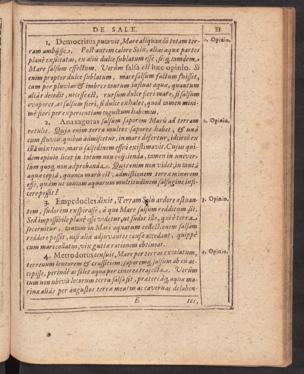 DE SALE.
33
1. Democritus putavit, Mare aliquando totam ter-
ram ambijsse. Post autem calore Solis, alias aquæ partes
planè exsiccatas, ex aliis dulce sublatum esse, sicq; tandem
Mare salsum effectum. Verùm falsa est hæc opinio. Si
enim propter dulce sublatum, mare salsum factum fuisset,
cum per pluvias & imbres tantum insinuat aquæ, quantum
aliàs decedit, necesse est, rursum dulce fieri mare, si salsum
evaporet, at salsum fieri, si dulce exhalet, quod tamen mini-
mè fieri per experientiam cognitum habemus.
1. Opinio.
2. Anaxagoras salsum saporem Maris ad terram
retulit. Quia enim terra multos sapores habet, & una
cum fluviis quibus admiscetur, in mare defertur, ideirco ex
istâ mixtione, maris salsedinem esse existimavit. Cujus qui-
dem opinio licet in totum non rejicienda, tamen in univer-
sum quoq; non adprobanda. Quis enim non videt, in tanta
aqua copia, quanta maris est, admistionem terræ minorem
esse, quàm ut tantam aquarum multitudinem salsugine infi-
cere possit?
2. Opinio.
3. Empedocles dixit, Terram Solis ardore æstuan-
tem, sudorem exspirasse, à quo Mare salsum redditum sit.
Sed impossibile planè esse videtur, ut sudor iste, qui è terra
secernitur, tantum in Maris aquarum collectionem salsam
reddere possit, nisi alia adjuvantis causa accedat, quippe
cum mari collatus, vix guttæ rationem obtineat.
3. Opinio.
4. Metrodorus censuit, Mare per terras excolatum,
terreum lentorem & crassitiem, saporemq; salsum ab ea ac-
cepisse, perinde ac solet aqua per cineres trajecta. Verùm
tum non ubevis locorum terra salsa sit, præterea q; aqua ma-
rina aliàs per angustos terra meatus ac cavernas delaben-
4. Opinio.
E
tes,